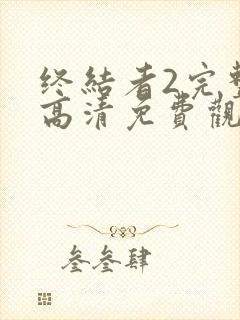 终结者2完整
高清免費觀
叁叁肆